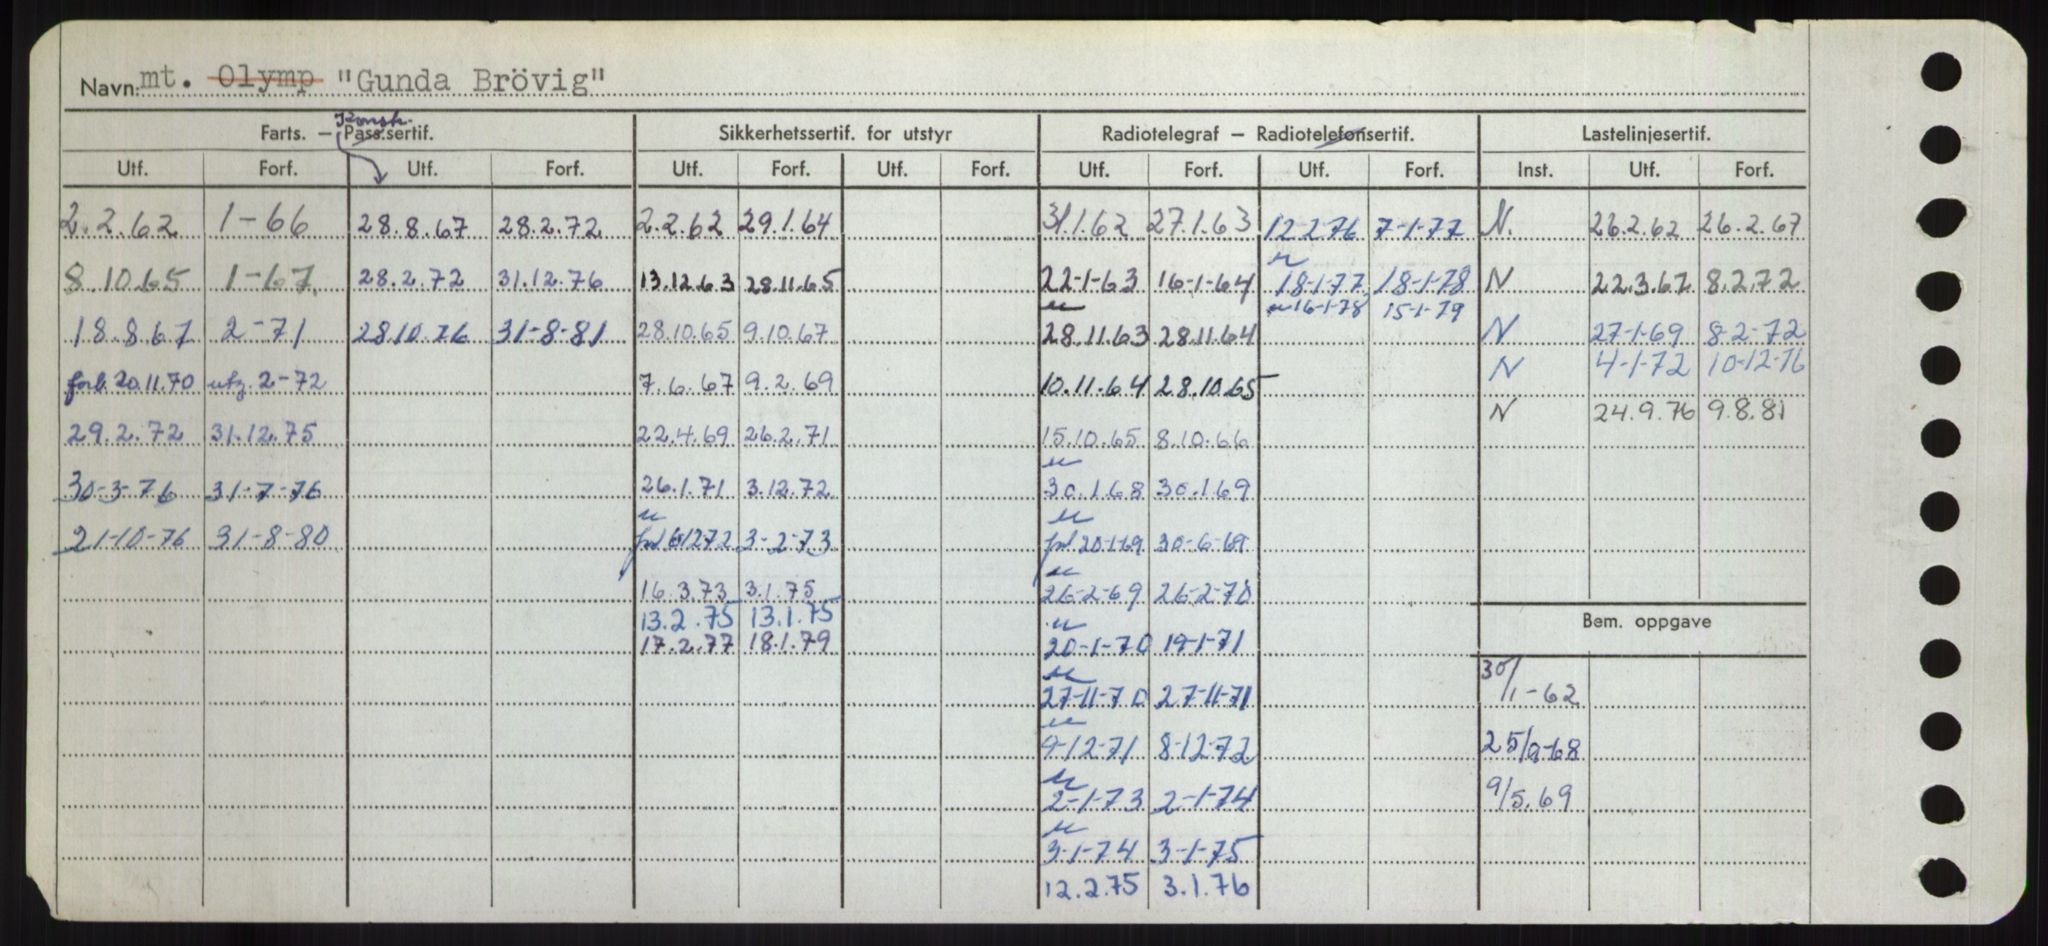 Navn: mt. Olymp "Gunda Brövig"
Konstr.
Farts. — Pass.sertif. Sikkerhetssertif. for utstyr Radiotelegraf — Radiotelefonsertif. Lastelinjesertif.
Utf. Forf. Utf. Forf. Utf. Forf. Utf. Forf. Utf. Forf. Utf. Forf. Inst. Utf. Forf.
2.2.62 1-66 28.8.67 28.2.72 2.2.62 29.1.64 31.1.62 27.1.63 12-2-76 7-1-77 N. 26.2.62 26.2.67
8.10.65 1-67. 28.2.72 31.12.76 13.12.63 28.11.65 22-1-63 16-1-64 18-1-77 18-1-78 N 22.3.67 8.2.72
16-1-78 15-1-79
18.8.67 2-71 28.10.76 31-8-81 28.10.65 9.10.67 28.11.63 28.11.64 N 27-1-69 8-2-72
N 4-1-72 10-12-76
forl. 20.11.70 utg. 2-72 7.6.67 9.2.69 10.11.64 28.10.65
N 24.9.76 9.8.81
29.2.72 31.12.75 22.4.69 26.2.71 15.10.65 8.10.66
30-3-76 31-7-76 26.1.71 3.12.72 30.1.68 30.1.69
21-10-76 31-8-80 forl 6/12 72 3-2-73 forl 20-1-69 30-6-69
16.3.73 3.1.75 26-2-69 26-2-70
13.2.75 13.1.75
Bem. oppgave
17.2.77 18.1.79 20-1-70 19-1-71
30/1-62
27-11-70 27-11-71
9-12-71 8-12-72 25/9-68
2-1-73 2-1-74 9/5.69
3-1-74 3-1-75
12.2.75 3.1.76